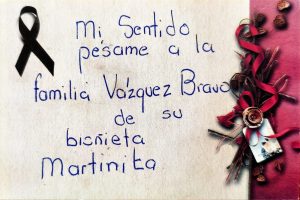 Mi Sentido
pésame a la
familia Vázquez Bravo
de su
bisñieta
Martinita